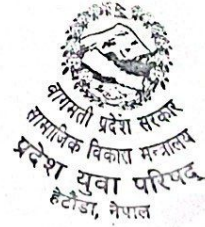 वागमती प्रदेश सरकार
सामाजिक विकास मन्त्रालय
प्रदेश युवा परिषद्
हेटौंडा, नेपाल